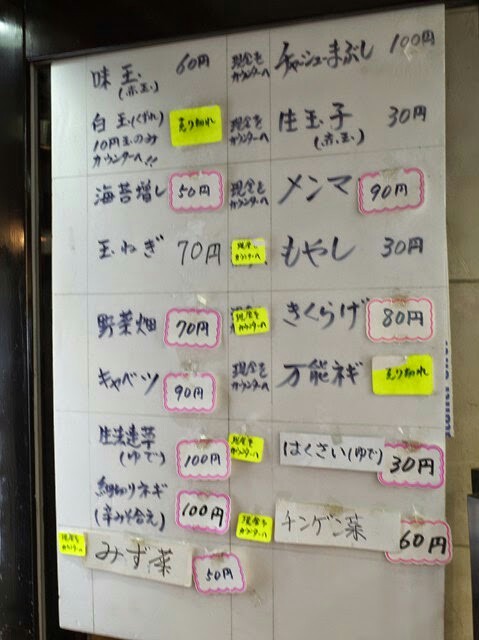 味玉 60円 現金を チャーシューまぶし 100円
(赤玉) カウンターへ
白玉(くずれ) 売り切れ 現金を 生玉子 30円
10円玉のみ カウンターへ (赤玉)
カウンターへ!!
海苔増し 50円 現金を メンマ 90円
カウンターへ
玉ねぎ 70円 現金を もやし 30円
カウンターへ
野菜畑 70円 現金を きくらげ 80円
カウンターへ
キャベツ 90円 現金を 万能ネギ 売り切れ
カウンターへ
100円 現金を はくさい(ゆで) 30円
(ゆで) カウンターへ
細切りネギ 100円 現金を チンゲン菜 60円
(辛みそ合え) カウンターへ
現金を みず菜 50円
カウンターへ